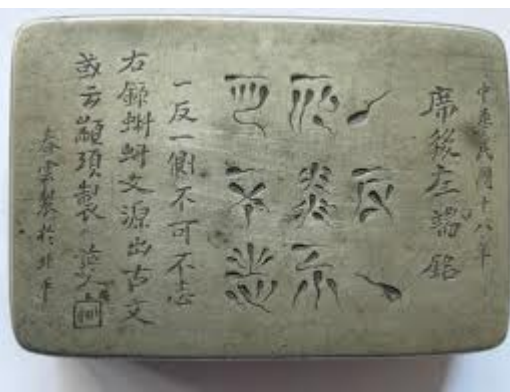 中華民國十八年
席後左端銘
一反一
側不
可不志
一反一側不可不志
右錄蝌蚪文源出古文
或云顓頊製
春雲製於北平